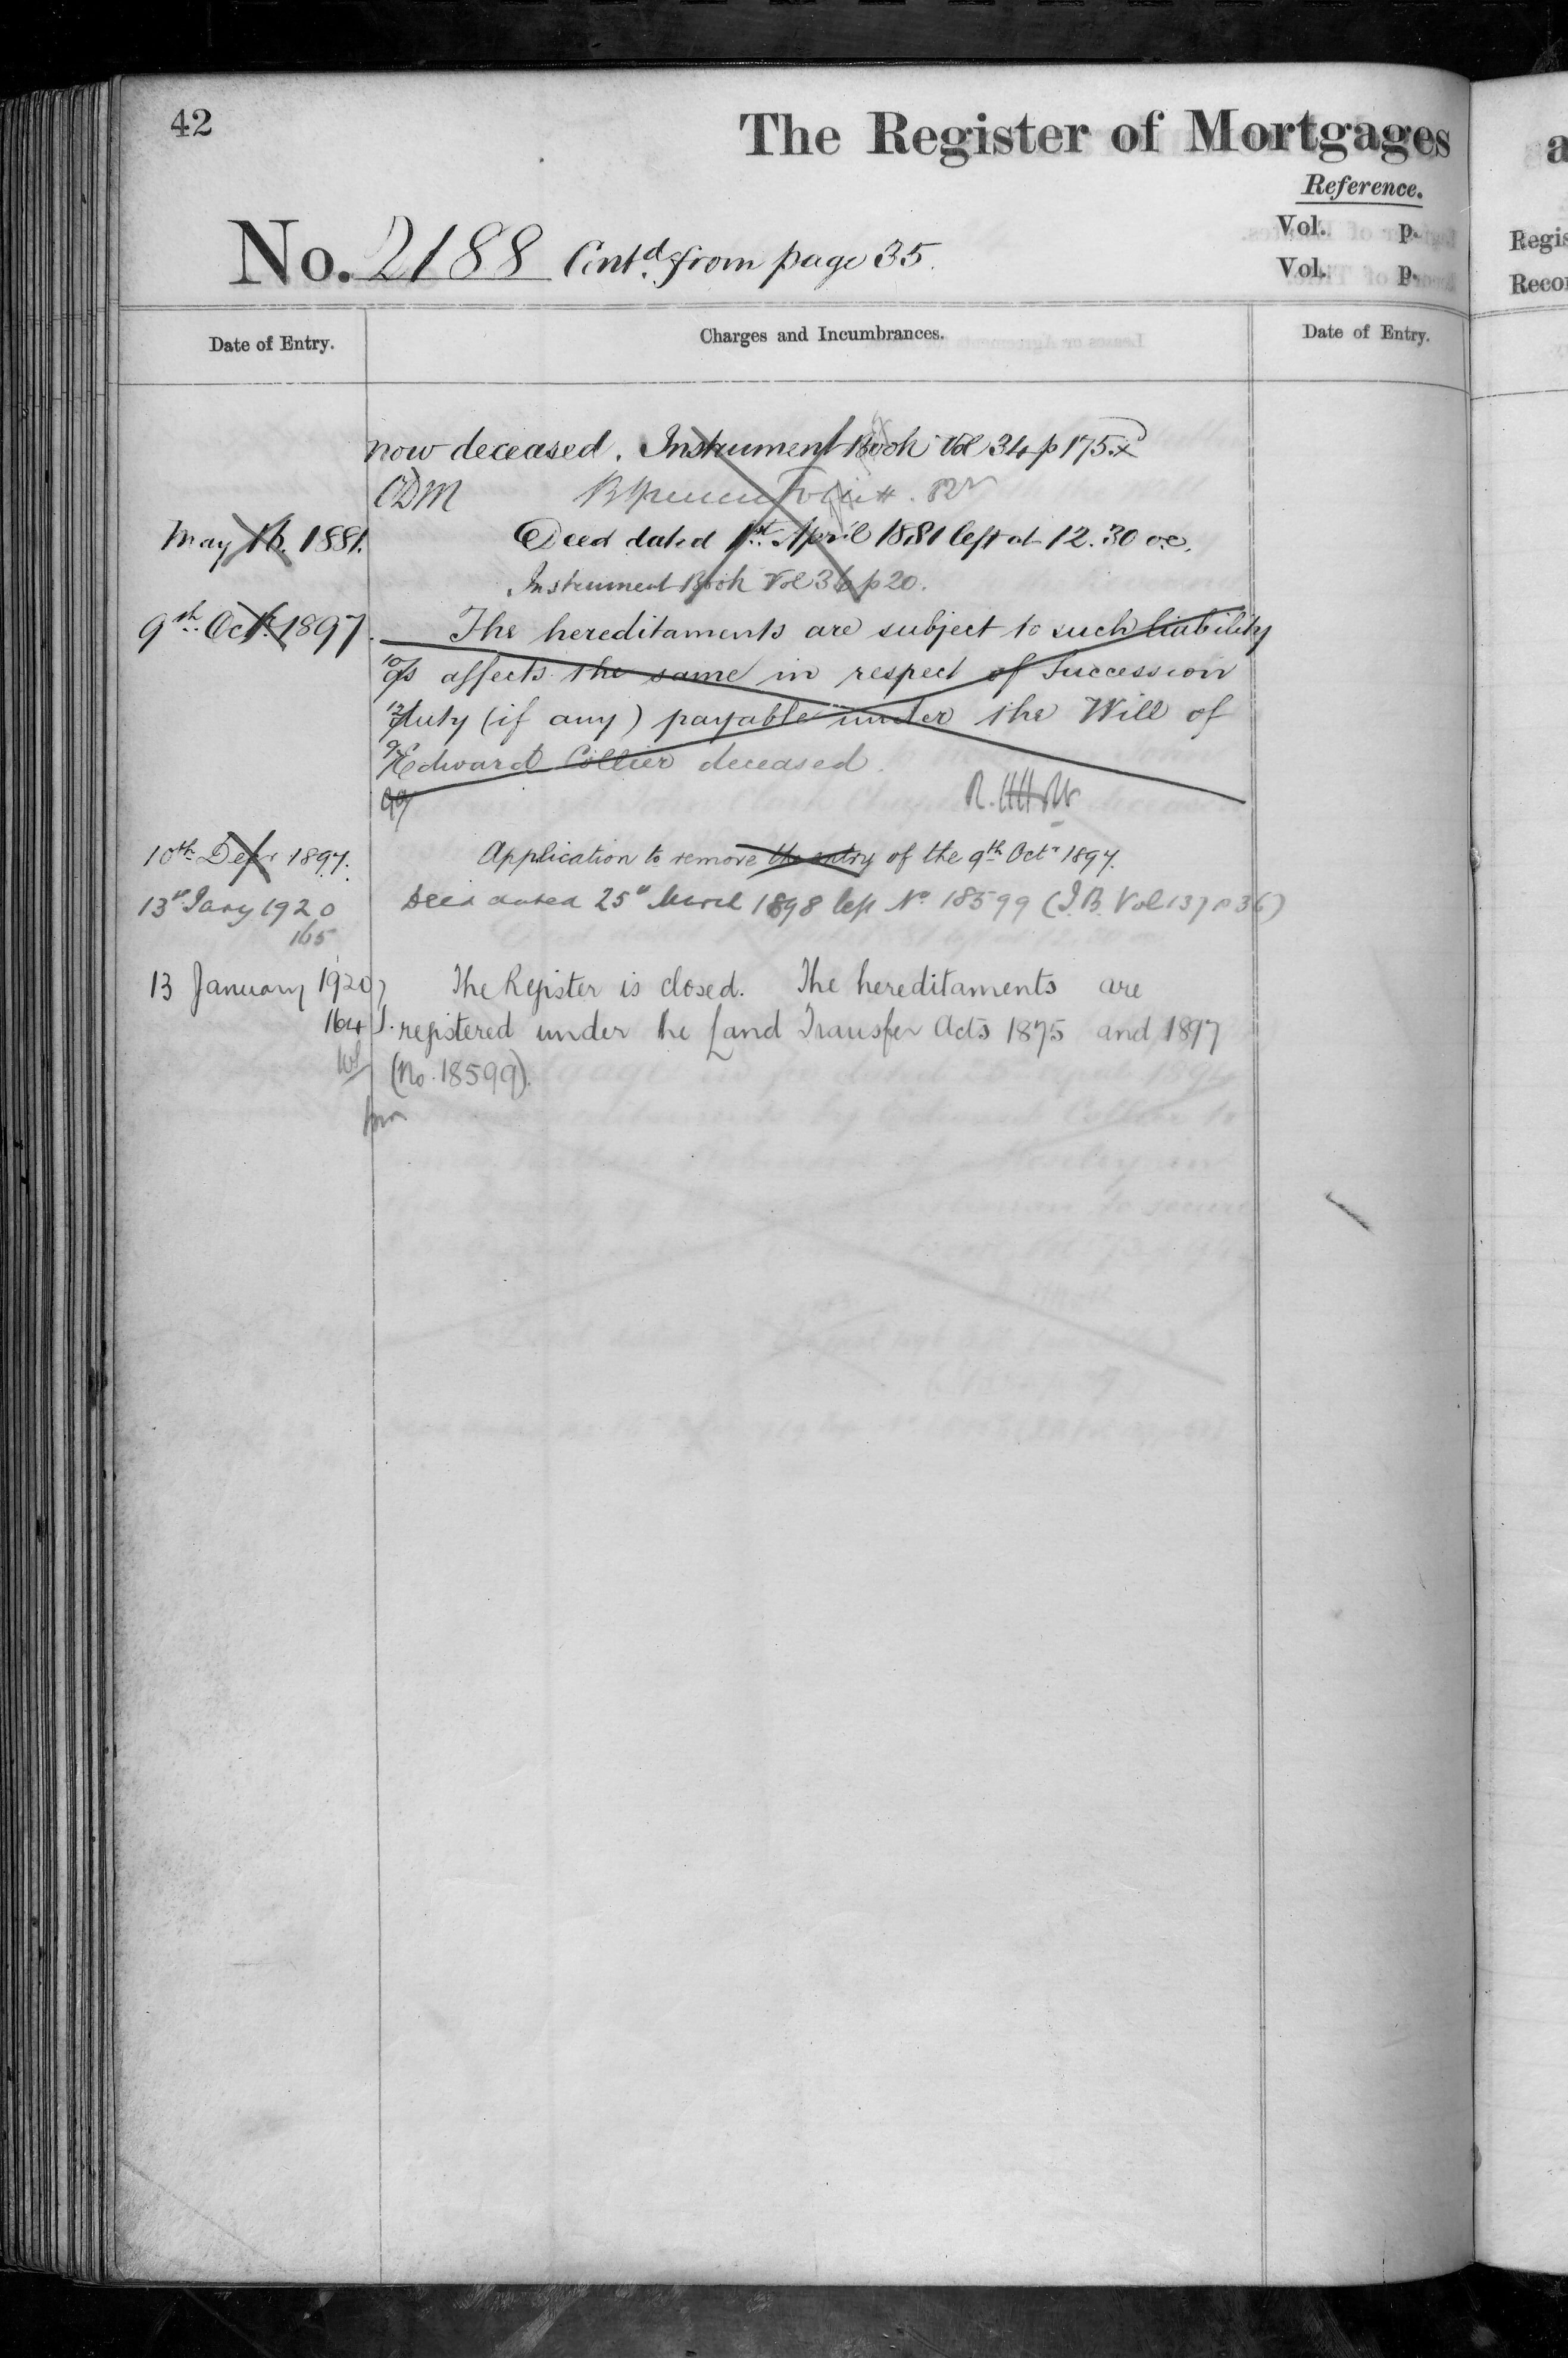 42
The Register of Mortgages
Reference.
Vol. p.
Vol. p.
No. 2188 Contd. from page 35.
Date of Entry.
Charges and Incumbrances.
Date of Entry.
now deceased. Instrument Book Vol 34 p 175.
CDM
May 16. 1881. Deed dated 1st April 1881 left at 12.30 oc.
Instrument Book Vol 36 p 20.
9th Octr. 1897. The hereditaments are subject to such liability
as affects the same in respect of Succession
duty (if any) payable under the Will of
Edward Collier deceased.
10th Decr 1897. Application to remove the entry of the 9th Octr 1897.
13th Jany 1920 Deed dated 25th March 1898 left No 18599 (I.B. Vol 137 p 36)
165
13 January 1920 The Register is closed. The hereditaments are
164 registered under the Land Transfer Acts 1875 and 1897
(No. 18599).
a
Regis
Recor